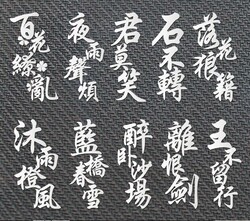 落花狼籍
石不轉
君莫笑
夜雨聲煩
百花繚亂
王不留行
離恨劍
醉臥沙場
藍橋春雪
沐雨橙風